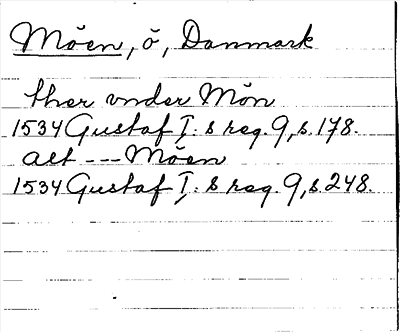 Möen, ö, Danmark
ther vnder Mön
1534 Gustaf I:s reg. 9, s. 178.
att --- Möen
1534 Gustaf I:s reg. 9, s. 248.